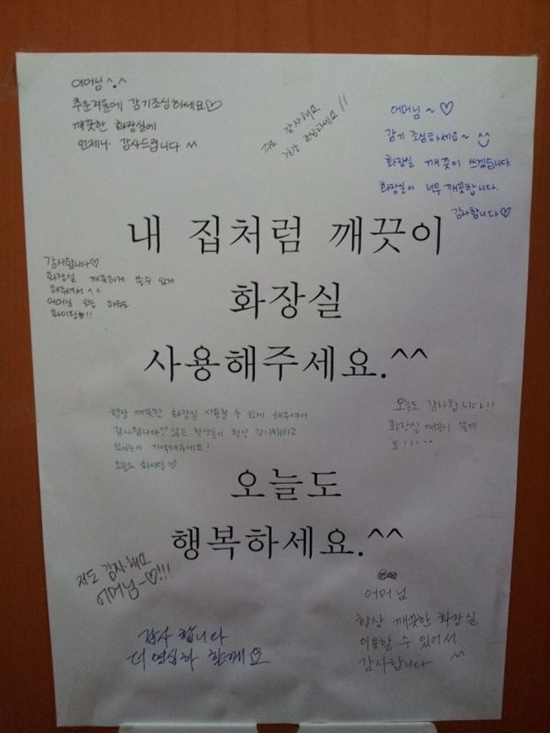 어머님 ^.^
추운겨울에 감기조심하세요♡
깨끗한 화장실에
언제나 감사드립니다 ^^
저도 감사해요
건강 조심하세요!!
어머님~♡
감기 조심하세요~ ^^
화장실 깨끗이 쓰겠습니다
화장실이 너무 깨끗합니다.
감사합니다♡
내 집처럼 깨끗이
화장실
사용해주세요.^^
감사합니다♡
화장실 깨끗하게 쓸수 있게
해주셔서 ^^
어머님 오늘 하루도
파이팅!!
항상 깨끗한 화장실 사용할 수 있게 해주셔서
감사합니다!^^ 많은 학생들이 항상 감사해하고
있다는거 기억해주세요!
오늘도 화이팅♡
오늘도 감사합니다!!
화장실 깨끗이 쓸게
요!!! ^^
오늘도
행복하세요.^^
저도 감사해요
어머님~♡!!!
감사합니다
더 열심히 할게요
어머님
항상 깨끗한 화장실
이용할 수 있어서
감사합니다 ^^